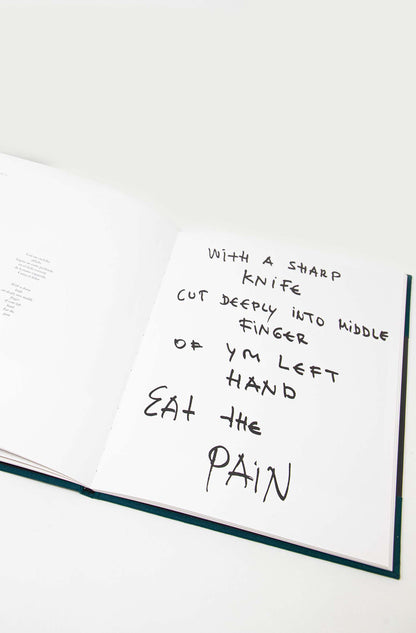 WITH A SHARP
KNIFE
CUT DEEPLY INTO MIDDLE
FINGER
OF YM LEFT
HAND
EAT THE
PAIN